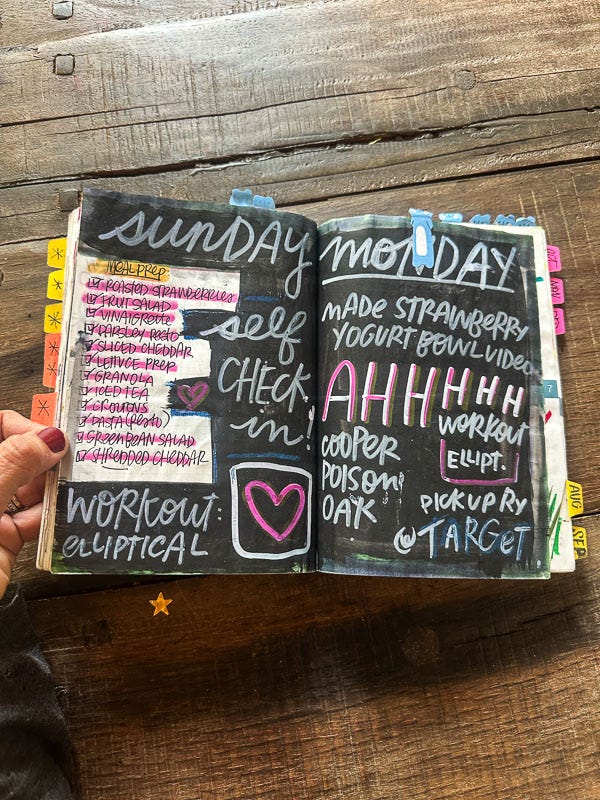 sunDAY
MEALPREP
ROASTED STRAWBERRIES
FRUIT SALAD
VINAIGRETTE
PARSLEY PESTO
SLICED CHEDDAR
LETTUCE PREP
GRANOLA
ICED TEA
CROUTONS
PASTA (PESTO)
GREEN BEAN SALAD
SHREDDED CHEDDAR
self
CHECK
in!
WORKOUT:
eLLIPTICAL
monDAY
MADE STRAWBERRY
YOGURT BOWL VIDEO
AHHHHHH
WORKOUT
ELLIPT.
COOPER
POISON
OAK
PICK UP RX
@ TARGET
OCT
NOV
7
AUG
SEP